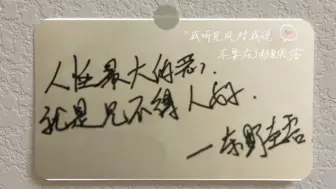 “我听见风对我说
不要在乎别人的话
人性最大的恶，
就是见不得人好.
—东野圭吾